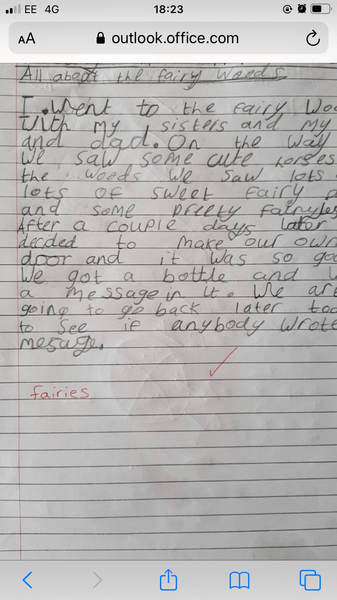 EE 4G 18:23
AA outlook.office.com
All about the fairy woods
I went to the fairy Woo
With my sisters and my
and dad. On the way
We saw some cute horses
the woods we saw lots
lots of sweet fairy
and some pretty fairyies
After a couple days later
decided to make our own
door and it was so goo
We got a bottle and
a message in it. We are
going to go back later too
to see if anybody wrote
mesage.
fairies